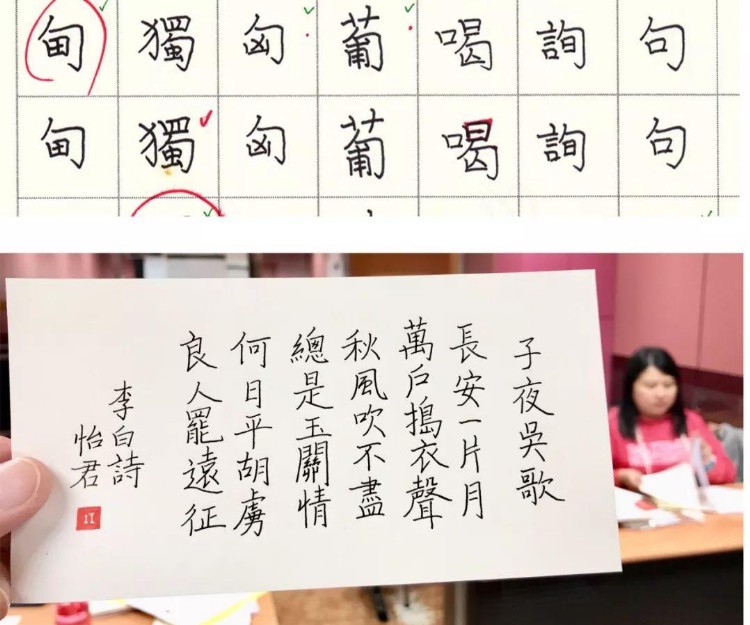 甸獨匈葡喝詢句
甸獨匈葡喝詢句
子夜吳歌
長安一片月
萬戶搗衣聲
秋風吹不盡
總是玉關情
何日平胡虜
良人罷遠征
李白詩
怡君